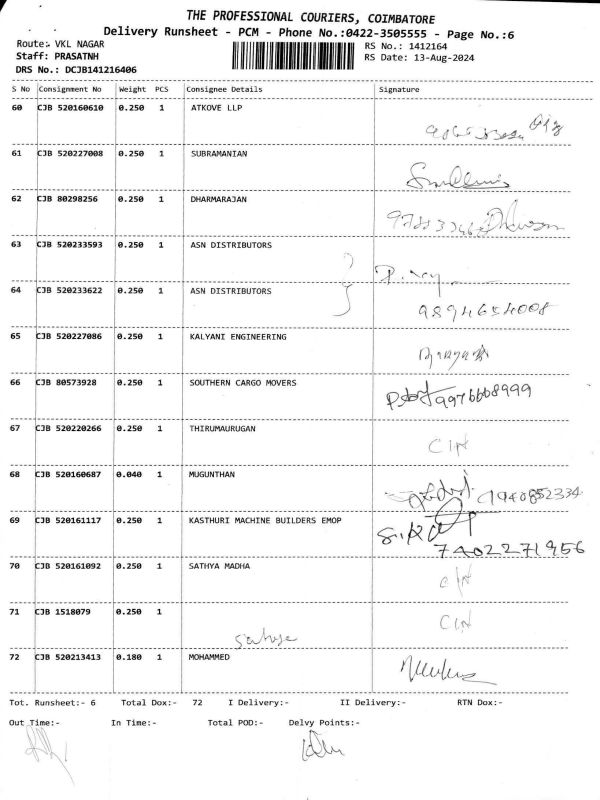 THE PROFESSIONAL COURIERS, COIMBATORE
Delivery Runsheet - PCM - Phone No.:0422-3505555 - Page No.:6
Route: VKL NAGAR RS No.: 1412164
Staff: PRASATNH RS Date: 13-Aug-2024
DRS No.: DCJB141216406
S No Consignment No Weight PCS Consignee Details Signature
60 CJB 520160610 0.250 1 ATKOVE LLP
61 CJB 520227008 0.250 1 SUBRAMANIAN
62 CJB 80298256 0.250 1 DHARMARAJAN
63 CJB 520233593 0.250 1 ASN DISTRIBUTORS
64 CJB 520233622 0.250 1 ASN DISTRIBUTORS
9894654008
65 CJB 520227086 0.250 1 KALYANI ENGINEERING
66 CJB 80573928 0.250 1 SOUTHERN CARGO MOVERS
9976668999
67 CJB 520220266 0.250 1 THIRUMAURUGAN
CIN
68 CJB 520160687 0.040 1 MUGUNTHAN
69 CJB 520161117 0.250 1 KASTHURI MACHINE BUILDERS EMOP
7402271956
70 CJB 520161092 0.250 1 SATHYA MADHA
71 CJB 1518079 0.250 1
CIN
72 CJB 520213413 0.180 1 MOHAMMED
Tot. Runsheet:- 6 Total Dox:- 72 I Delivery:- II Delivery:- RTN Dox:-
Out Time:- In Time:- Total POD:- Delvy Points:-